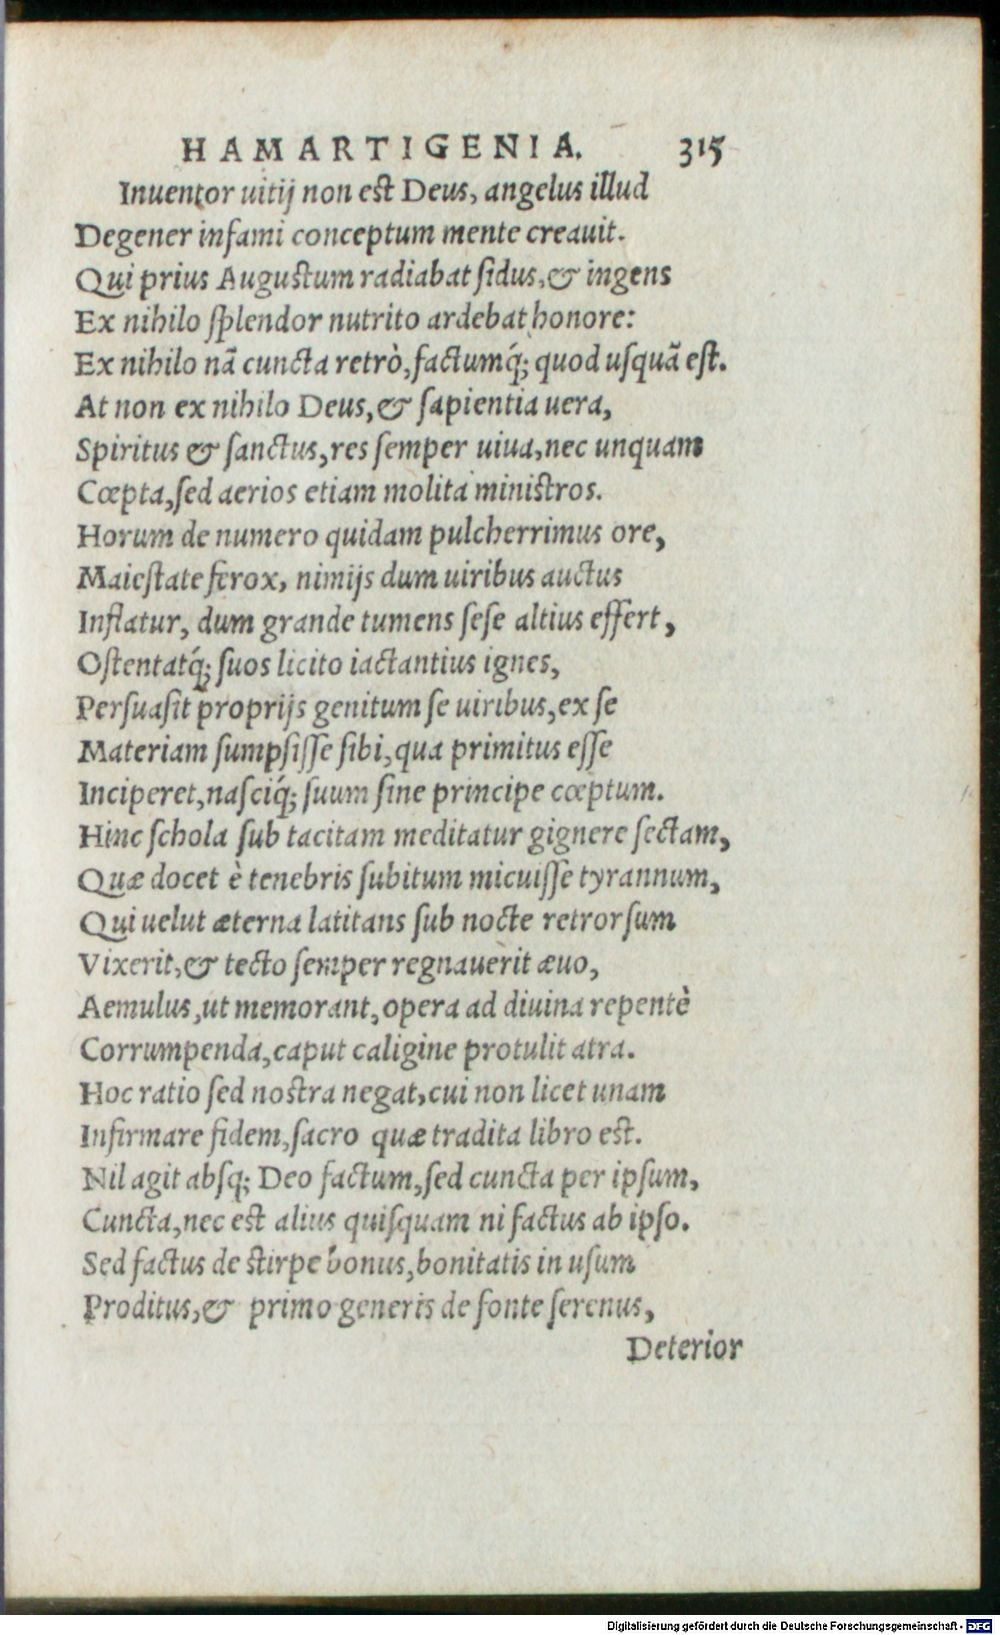 HAMARTIGENIA. 315
Inuentor uitij non est Deus, angelus illud
Degener infami conceptum mente creauit.
Qui prius Augustum radiabat ſidus, & ingens
Ex nihilo ſplendor nutrito ardebat honore:
Ex nihilo nã cuncta retrò, factumq́; quod uſquã eſt.
At non ex nihilo Deus, & ſapientia uera,
Spiritus & ſanctus, res ſemper uiua, nec unquam
Cœpta, ſed aerios etiam molita ministros.
Horum de numero quidam pulcherrimus ore,
Maieſtate ferox, nimijs dum uiribus auctus
Inflatur, dum grande tumens ſeſe altius effert,
Oſtentatq́; ſuos licito iactantius ignes,
Perſuaſit proprijs genitum ſe uiribus, ex ſe
Materiam ſumpſiſſe ſibi, qua primitus eſſe
Inciperet, naſciq́; ſuum ſine principe cœptum.
Hinc ſchola ſub tacitam meditatur gignere ſectam,
Quæ docet è tenebris ſubitum micuiſſe tyrannum,
Qui uelut æterna latitans ſub nocte retrorſum
Vixerit, & tecto ſemper regnauerit æuo,
Aemulus, ut memorant, opera ad diuina repentè
Corrumpenda, caput caligine protulit atra.
Hoc ratio ſed nostra negat, cui non licet unam
Infirmare fidem, ſacro quæ tradita libro est.
Nil agit abſq; Deo factum, ſed cuncta per ipſum,
Cuncta, nec est alius quiſquam ni factus ab ipſo.
Sed factus de stirpe bonus, bonitatis in uſum
Proditus, & primo generis de fonte ſerenus,
Deterior
Digitalisierung gefördert durch die Deutsche Forschungsgemeinschaft - DFG